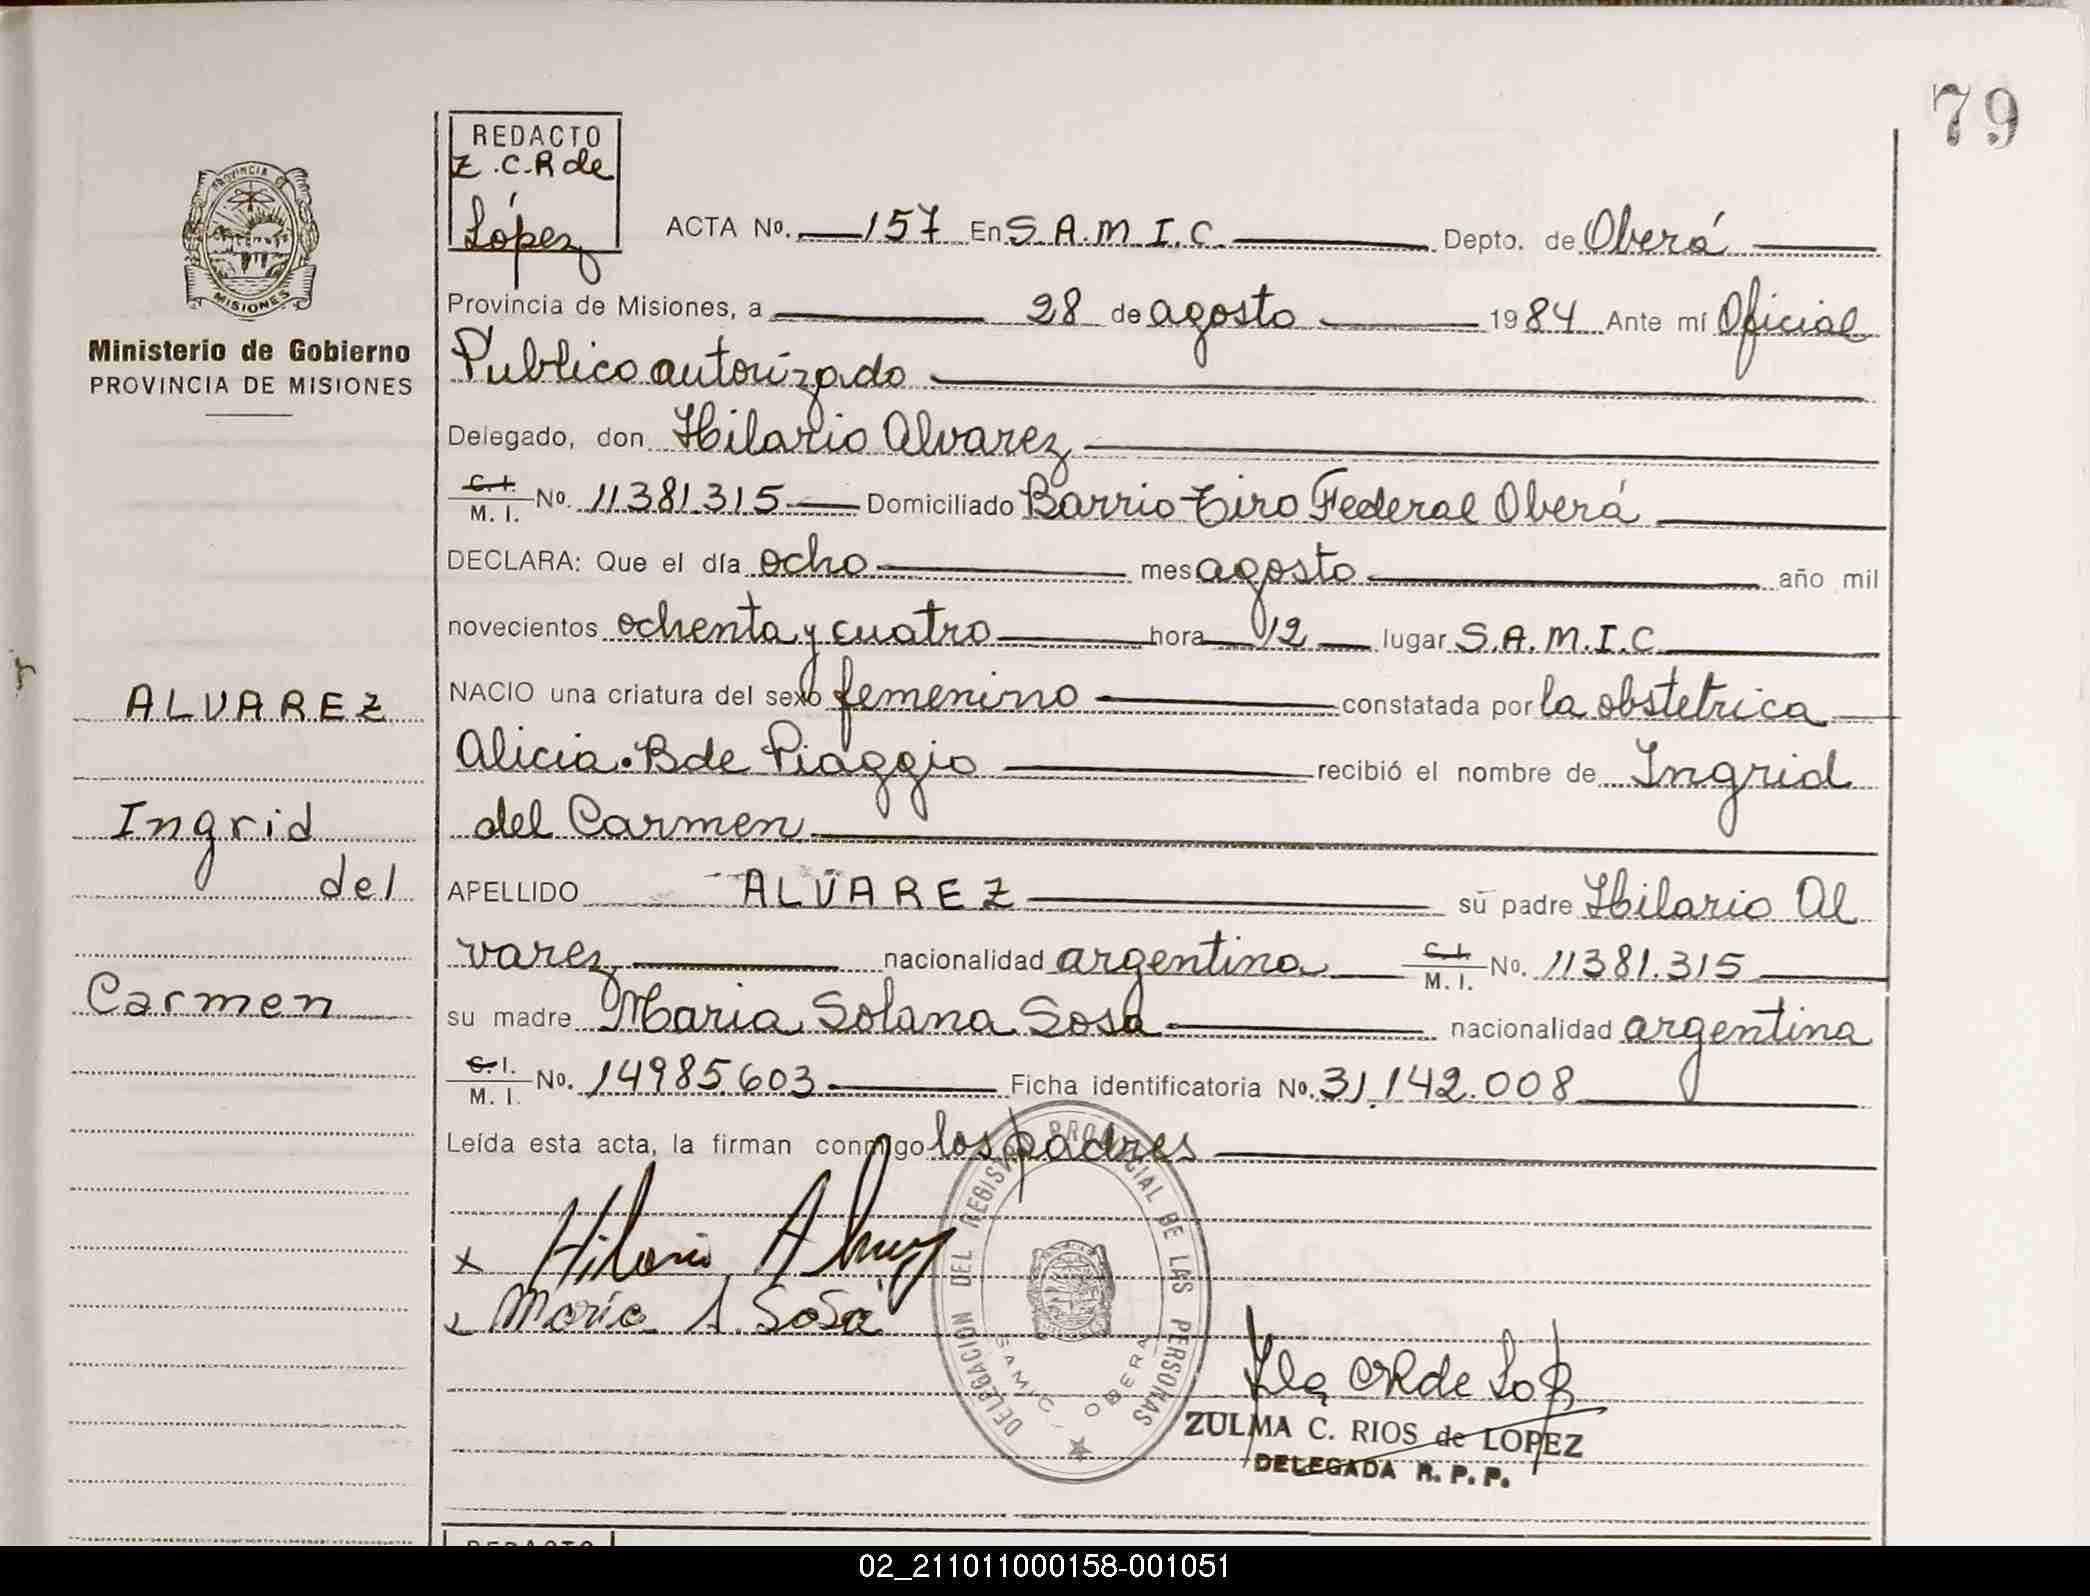 79
REDACTO
Z.C.R de
López
PROVINCIA DE
MISIONES
Ministerio de Gobierno
PROVINCIA DE MISIONES
ACTA No. 157 En S.A.M.I.C. Depto. de Oberá
Provincia de Misiones, a 28 de agosto 1984 Ante mí Oficial
Publico autorizado
Delegado, don Hilario Alvarez
C.I. M.I. No. 11381.315 Domiciliado Barrio Tiro Federal Oberá
DECLARA: Que el día ocho mes agosto año mil
novecientos ochenta y cuatro hora 12 lugar S.A.M.I.C.
NACIO una criatura del sexo femenino constatada por la obstetrica
Alicia B de Piaggio recibió el nombre de Ingrid
del Carmen
APELLIDO ALVAREZ su padre Hilario Al
varez nacionalidad argentina C.I. M.I. No. 11381.315
su madre Maria Solana Sosa nacionalidad argentina
C.I. M.I. No. 14985.603 Ficha identificatoria No. 31.142.008
Leída esta acta, la firman conmigo los padres
ALVAREZ
Ingrid
del
Carmen
x Hilario Alvarez
x Maria S. Sosa
DELEGACIÓN DEL REGISTRO PROVINCIAL DE LAS PERSONAS
SAMIC - OBERA
ZULMA C. RIOS de LOPEZ
DELEGADA R.P.P.
REDACTO
02_211011000158-001051